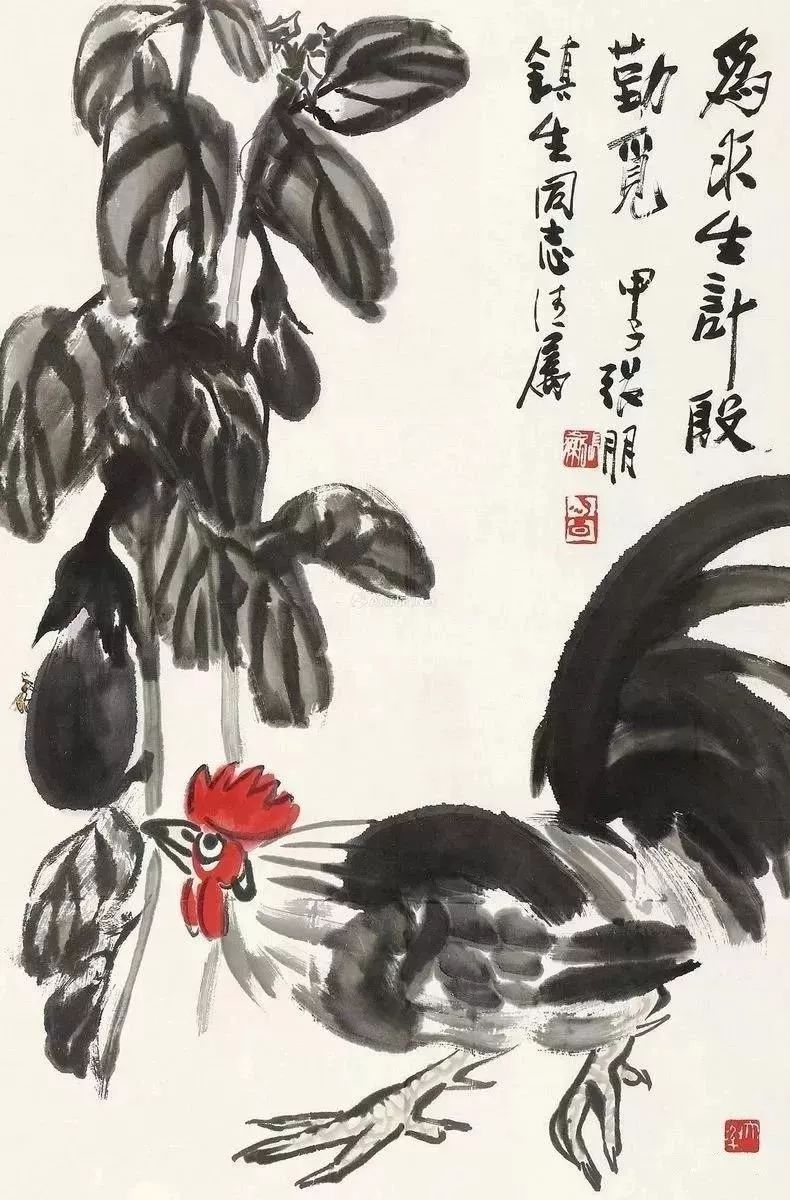 為求生計殷
勤覓 甲子 張朋
鎮生同志清屬